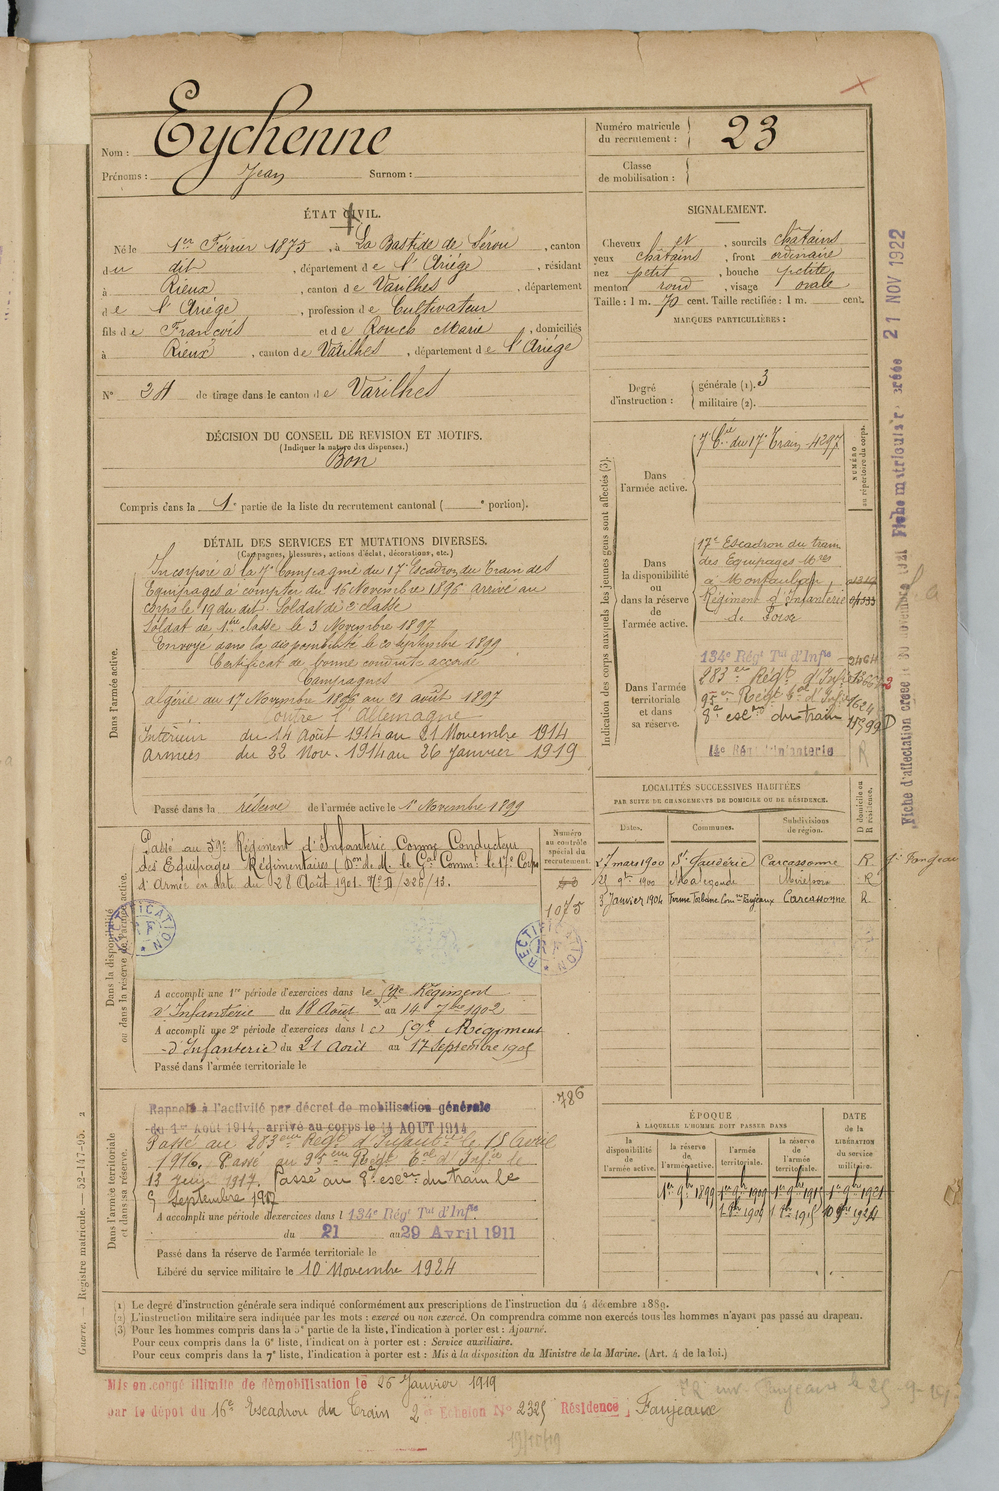 Nom : Eychenne
Prénoms : Jean Surnom :
Numéro matricule du recrutement : 23
Classe de mobilisation :
ÉTAT CIVIL.
Né le 1er Février 1875, à La Bastide de Sérou, canton
du dit, département de l'Ariége, résidant
à Rieux, canton de Varilhes, département
de l'Ariége, profession de Cultivateur
fils de François et de Rouch Marie, domiciliés
à Rieux, canton de Varilhes, département de l'Ariége
N° 24 de tirage dans le canton de Varilhes
SIGNALEMENT.
Cheveux et, sourcils châtains
yeux châtains, front ordinaire
nez petit, bouche petite
menton rond, visage ovale
Taille : 1 m. 70 cent. Taille rectifiée : 1 m. cent.
MARQUES PARTICULIÈRES :
Degré d'instruction : générale (1). 3
militaire (2).
DÉCISION DU CONSEIL DE REVISION ET MOTIFS.
(Indiquer la nature des dispenses.)
Bon
Compris dans la 1e partie de la liste du recrutement cantonal ( e portion).
DÉTAIL DES SERVICES ET MUTATIONS DIVERSES.
(Campagnes, blessures, actions d'éclat, décorations, etc.)
Dans l'armée active.
Incorporé à la 7e Compagnie du 17e Escadron du Train des
Equipages à compter du 16 Novembre 1896 arrivé au
corps le 19 du dit. Soldat de 2e classe
Soldat de 1ère classe le 3 Novembre 1897
Envoyé dans la disponibilité le 20 septembre 1899
Certificat de bonne conduite accordé
Campagnes
Algérie du 17 Novembre 1896 au 21 août 1897
Contre l'Allemagne
Intérieur du 14 Août 1914 au 21 Novembre 1914
Armées du 22 Nov. 1914 au 26 Janvier 1919
Passé dans la réserve de l'armée active le 1er Novembre 1899
Indication des corps auxquels les jeunes gens sont affectés (3).
NUMÉRO au répertoire du corps.
Dans l'armée active.
7e Cie du 17e Train 4297
Dans la disponibilité ou dans la réserve de l'armée active.
17e Escadron du train
des Equipages Mres
à Montauban
Régiment d'Infanterie
de Foix
Dans l'armée territoriale et dans sa réserve.
134e Régt Tal d'Infie 2464
283em Régt d'Inf
95em Régt Tal d'Inf 1624
8e escon du train
14e Régt d'Infanterie
R
LOCALITÉS SUCCESSIVES HABITÉES
PAR SUITE DE CHANGEMENTS DE DOMICILE OU DE RÉSIDENCE.
Dates. Communes. Subdivisions de région. D domicile ou R résidence.
27 mars 1900 St Gaudéric Carcassonne R
25 9bre 1900 Malegoude Mirepoix R
3 Janvier 1904 Carcassonne R
Dans la disponibilité ou dans la réserve de l'armée active.
Numéro au contrôle spécial du recrutement.
1075
Passé au 59e Régiment d'Infanterie Comme Conducteur
des Equipages Régimentaires (Don de M. le Gal Commt le 17e Corps
d'Armée en date du 28 Août 1901. No
RECTIFICATION
RECTIFICATION
A accompli une 1re période d'exercices dans le 59e Régiment
d'Infanterie du 18 Août au 14 7bre 1902
A accompli une 2e période d'exercices dans le 59e Régiment
d'Infanterie du 21 Août au 17 Septembre 1905
Passé dans l'armée territoriale le
Dans l'armée territoriale et dans sa réserve.
786
Rappelé à l'activité par décret de mobilisation générale
du 1er Août 1914, arrivé au corps le 14 AOUT 1914
Passé au 283eme Régt d'Infanterie le 15 Avril
1916. Passé au 95em Régt Tal d'Infie le
13 juin 1917. Passé au 8e escon du train le
5 Septembre 1917
A accompli une période d'exercices dans l 134e Régt Tal d'Infie.
du 21 au 29 Avril 1911
Passé dans la réserve de l'armée territoriale le
Libéré du service militaire le 10 Novembre 1924
ÉPOQUE
À LAQUELLE L'HOMME DOIT PASSER DANS
la disponibilité de l'armée active. la réserve de l'armée active. l'armée territoriale. la réserve de l'armée territoriale.
DATE DE LA LIBÉRATION DU service militaire.
1er 9bre 1899 1er 9bre 1909 1er 9bre 1915 1er 9bre 1921
10 9bre 1924
(1) Le degré d'instruction générale sera indiqué conformément aux prescriptions de l'instruction du 4 décembre 1889.
(2) L'instruction militaire sera indiquée par les mots : exercé ou non exercé. On comprendra comme non exercés tous les hommes n'ayant pas passé au drapeau.
(3) Pour les hommes compris dans la 5e partie de la liste, l'indication à porter est : Ajourné.
Pour ceux compris dans la 6e liste, l'indication à porter est : Service auxiliaire.
Pour ceux compris dans la 7e liste, l'indication à porter est : Mis à la disposition du Ministre de la Marine. (Art. 4 de la loi.)
Guerre. — Registre matricule. — 52-147-95. 2
Mis en congé illimité de démobilisation le 26 Janvier 1919
par le dépôt du 16e Escadron du Train 2e Echelon No 2325 Résidence, Fanjeaux
19/10/19
Fiche matricule créée 21 NOV 1922
Fiche d'affectation créée